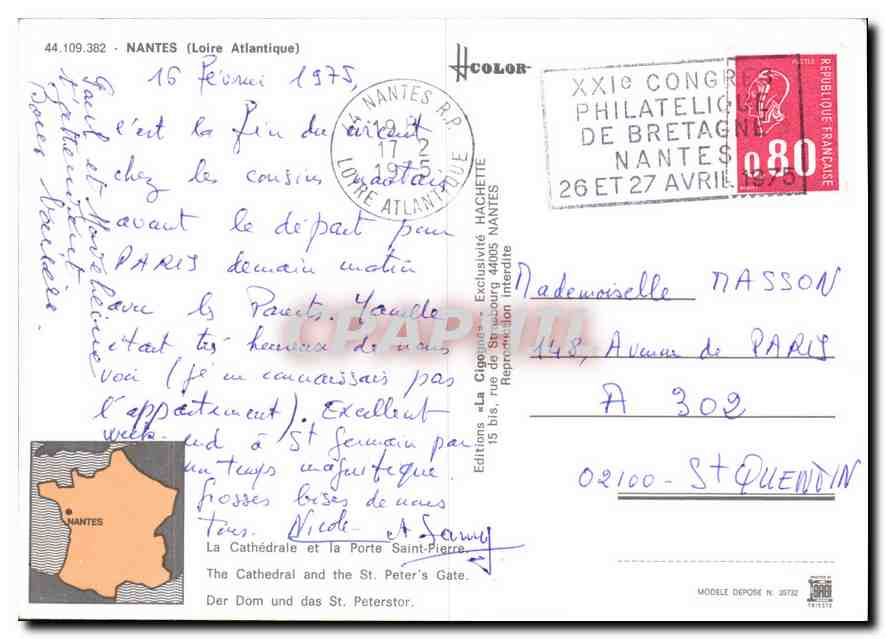 44.109.382 - NANTES (Loire Atlantique)
16 Février 1975,
c'est la fin du circuit
chez les cousins nantais
avant le départ pour
PARIS demain matin
avec les Parents. Famille
était très heureuse de nous
voir (je ne connaissais pas
l'appartement). Excellent
week-end à St Germain par
un temps magnifique.
Grosses bises de nous
tous. Nicole
Paul et
Bons baisers.
HCOLOR
44 NANTES R.P.
17-2
1975
LOIRE ATLANTIQUE
XXIe CONGRES
PHILATELIQUE
DE BRETAGNE
NANTES
26 ET 27 AVRIL 1975
POSTES
REPUBLIQUE FRANÇAISE
0,80
Editions «La Cigogne» - Exclusivité HACHETTE
15 bis, rue de Strasbourg 44005 NANTES
Reproduction interdite
Mademoiselle MASSON
148, Avenue de PARIS
A 302
02100 - St QUENTIN
CPAPHIL
NANTES
La Cathédrale et la Porte Saint-Pierre.
The Cathedral and the St. Peter's Gate.
Der Dom und das St. Peterstor.
MODELE DEPOSE N. 35732
TRIESTE